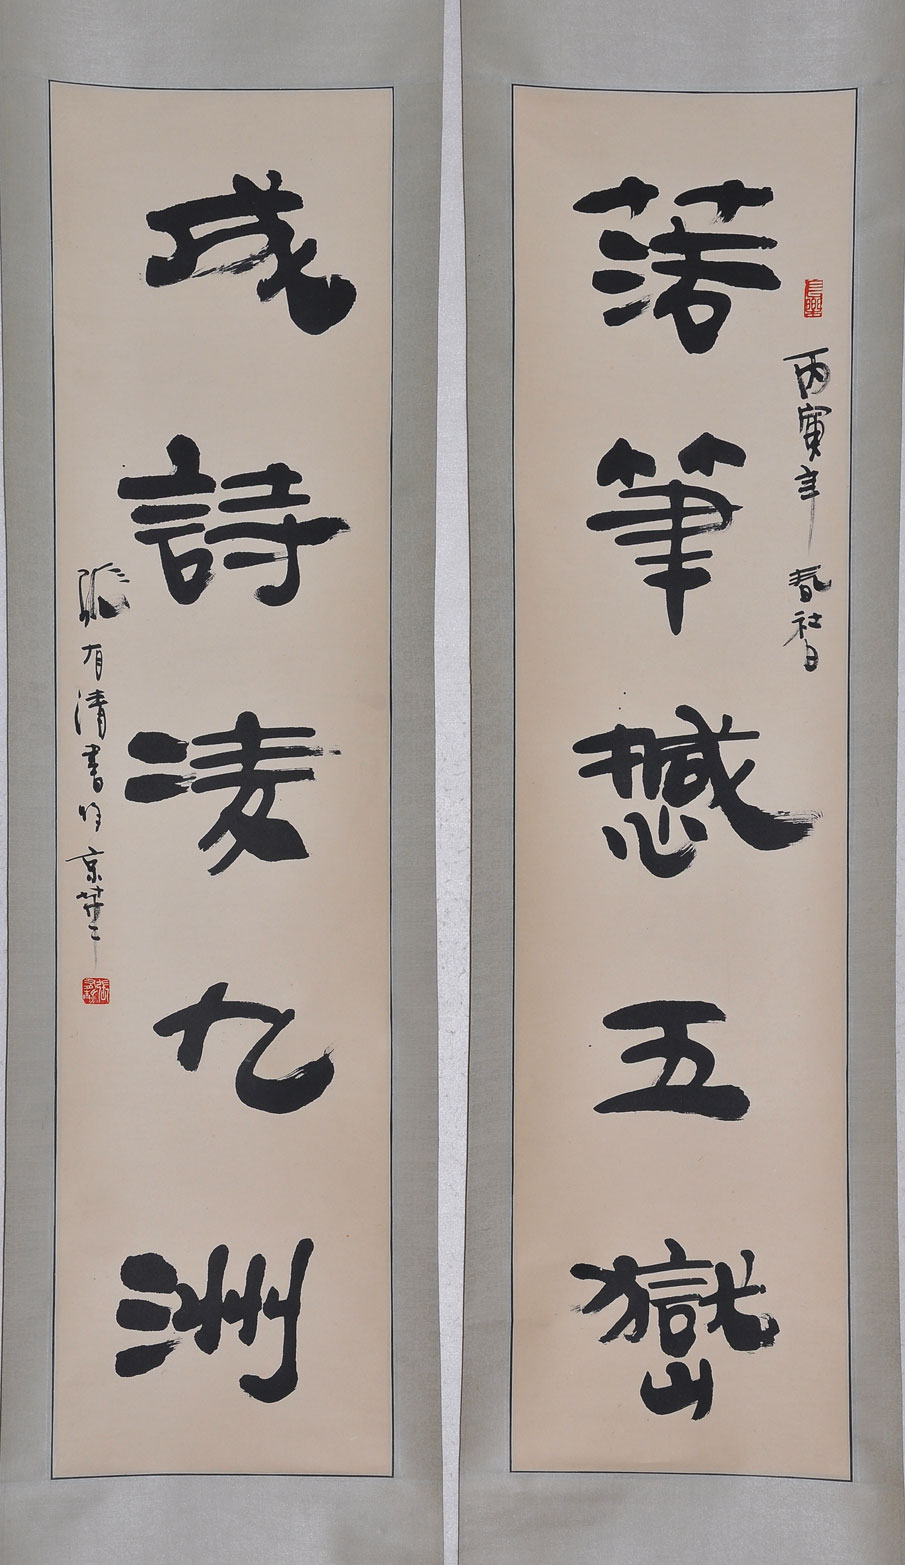 落筆撼五嶽
丙寅年春社日
成詩凌九洲
張有清書於京華
長樂